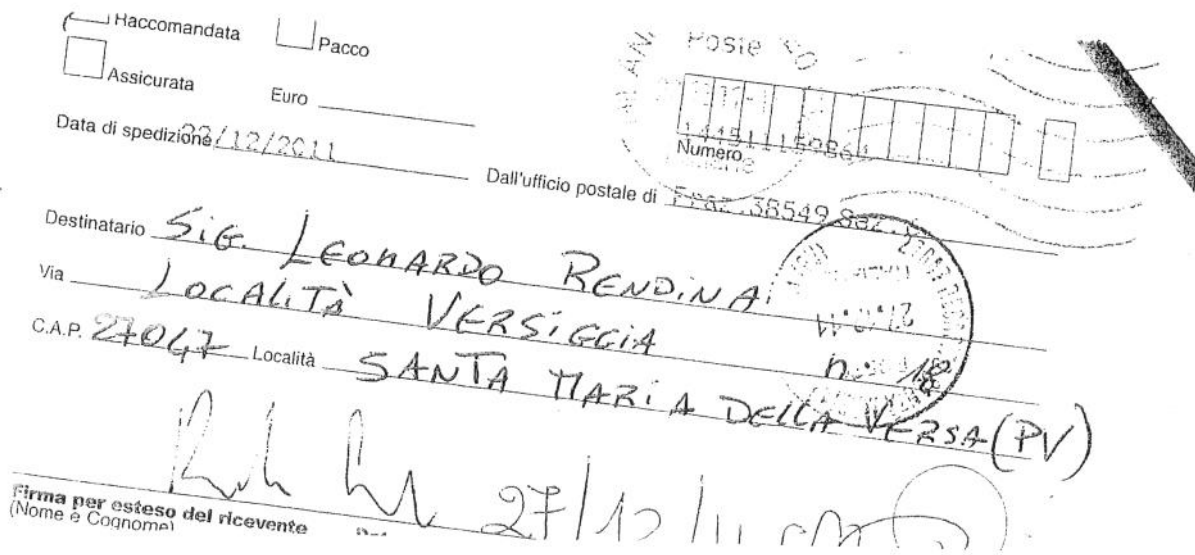 Raccomandata Pacco
Poste
Assicurata Euro
Numero
Data di spedizione 22/12/2011 Dall'ufficio postale di Fraz. 38549
Destinatario SiG. LEONARDO RENDiNA
Via LOCALiTÀ VERSiGGiA n. 18
C.A.P. 27047 Località SANTA MARiA DELLA VERSA (PV)
27/12/11
Firma per esteso del ricevente
(Nome e Cognome)